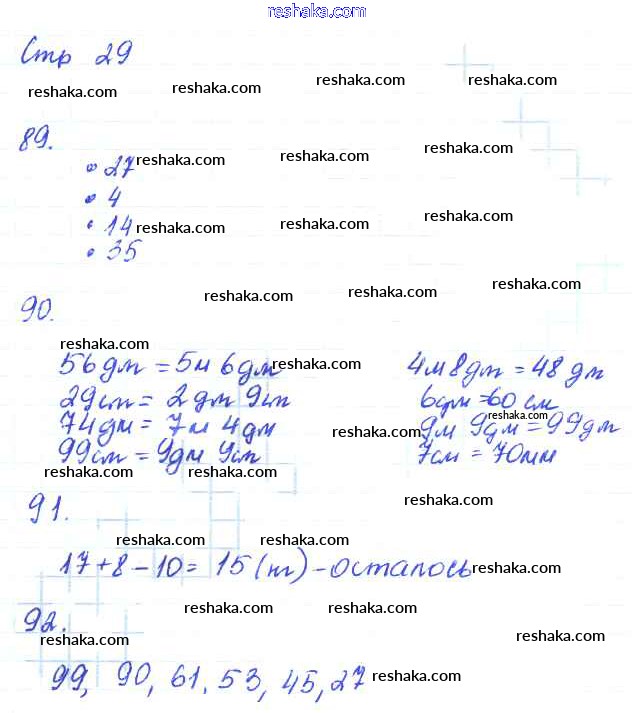 reshaka.com
Стр 29
reshaka.com reshaka.com reshaka.com reshaka.com
89.
• 27 reshaka.com reshaka.com reshaka.com
• 4
• 14 reshaka.com reshaka.com reshaka.com
• 35
reshaka.com reshaka.com reshaka.com
90.
reshaka.com
56 дм = 5м 6дм reshaka.com 4м 8дм = 48 дм
29см = 2 дм 9см 6дм = 60 см
reshaka.com
74 дм = 7м 4 дм reshaka.com 9м 9дм = 99 дм
99см = 9дм 9см 7см = 70мм
reshaka.com reshaka.com
91. reshaka.com
reshaka.com reshaka.com
17 + 8 - 10 = 15 (м) - осталось reshaka.com
reshaka.com reshaka.com
92.
reshaka.com reshaka.com
99, 90, 61, 53, 45, 27 reshaka.com